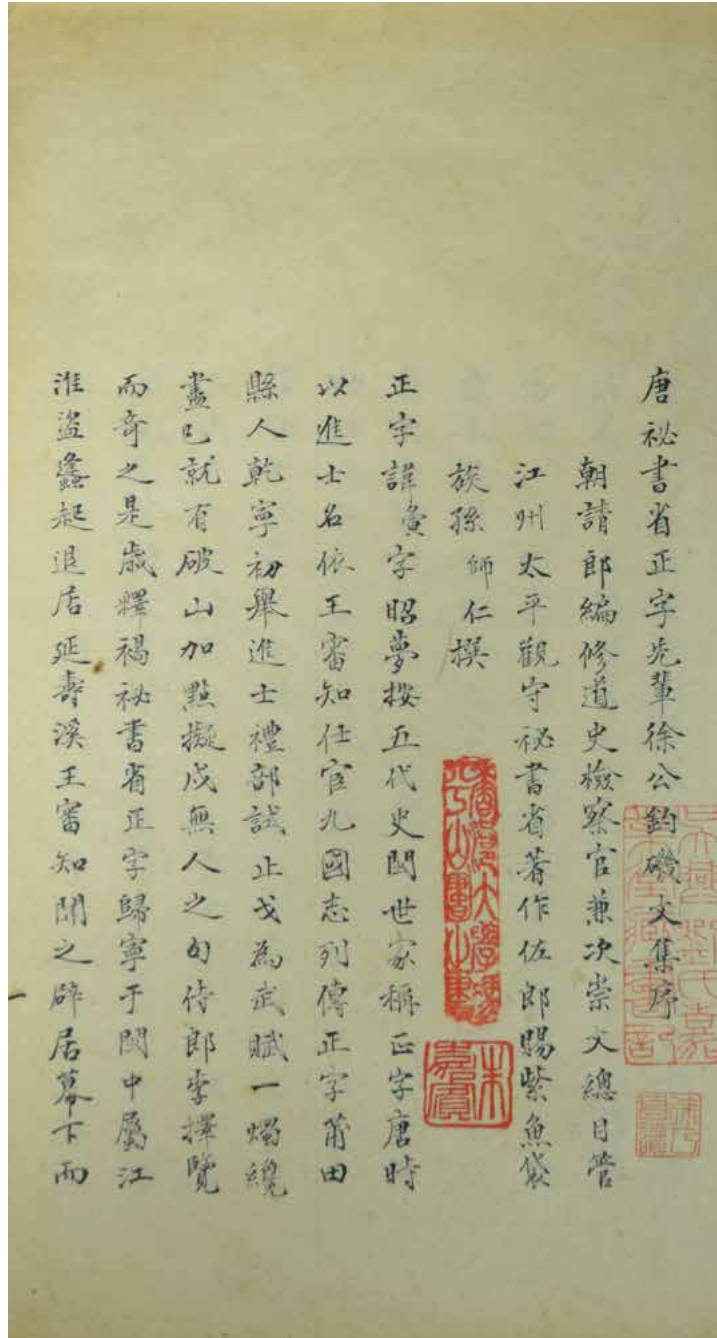 唐祕書省正字先輩徐公釣磯文集序
朝請郎編修道史檢察官兼次崇文總目管
江州太平觀守祕書省著作佐郎賜紫魚袋
族孫師仁撰
正字諱夤字昭夢按五代史閩世家稱正字唐時
以進士名依王審知仕官九國志列傳正字莆田
縣人乾寧初舉進士禮部試止戈為武賦一燭纔
盡已就有破山加點擬戍無人之句侍郎李擇覽
而奇之是歲釋褐祕書省正字歸寧于閩中屬江
淮盜蠭起退居延壽溪王審知聞之辟居幕下而